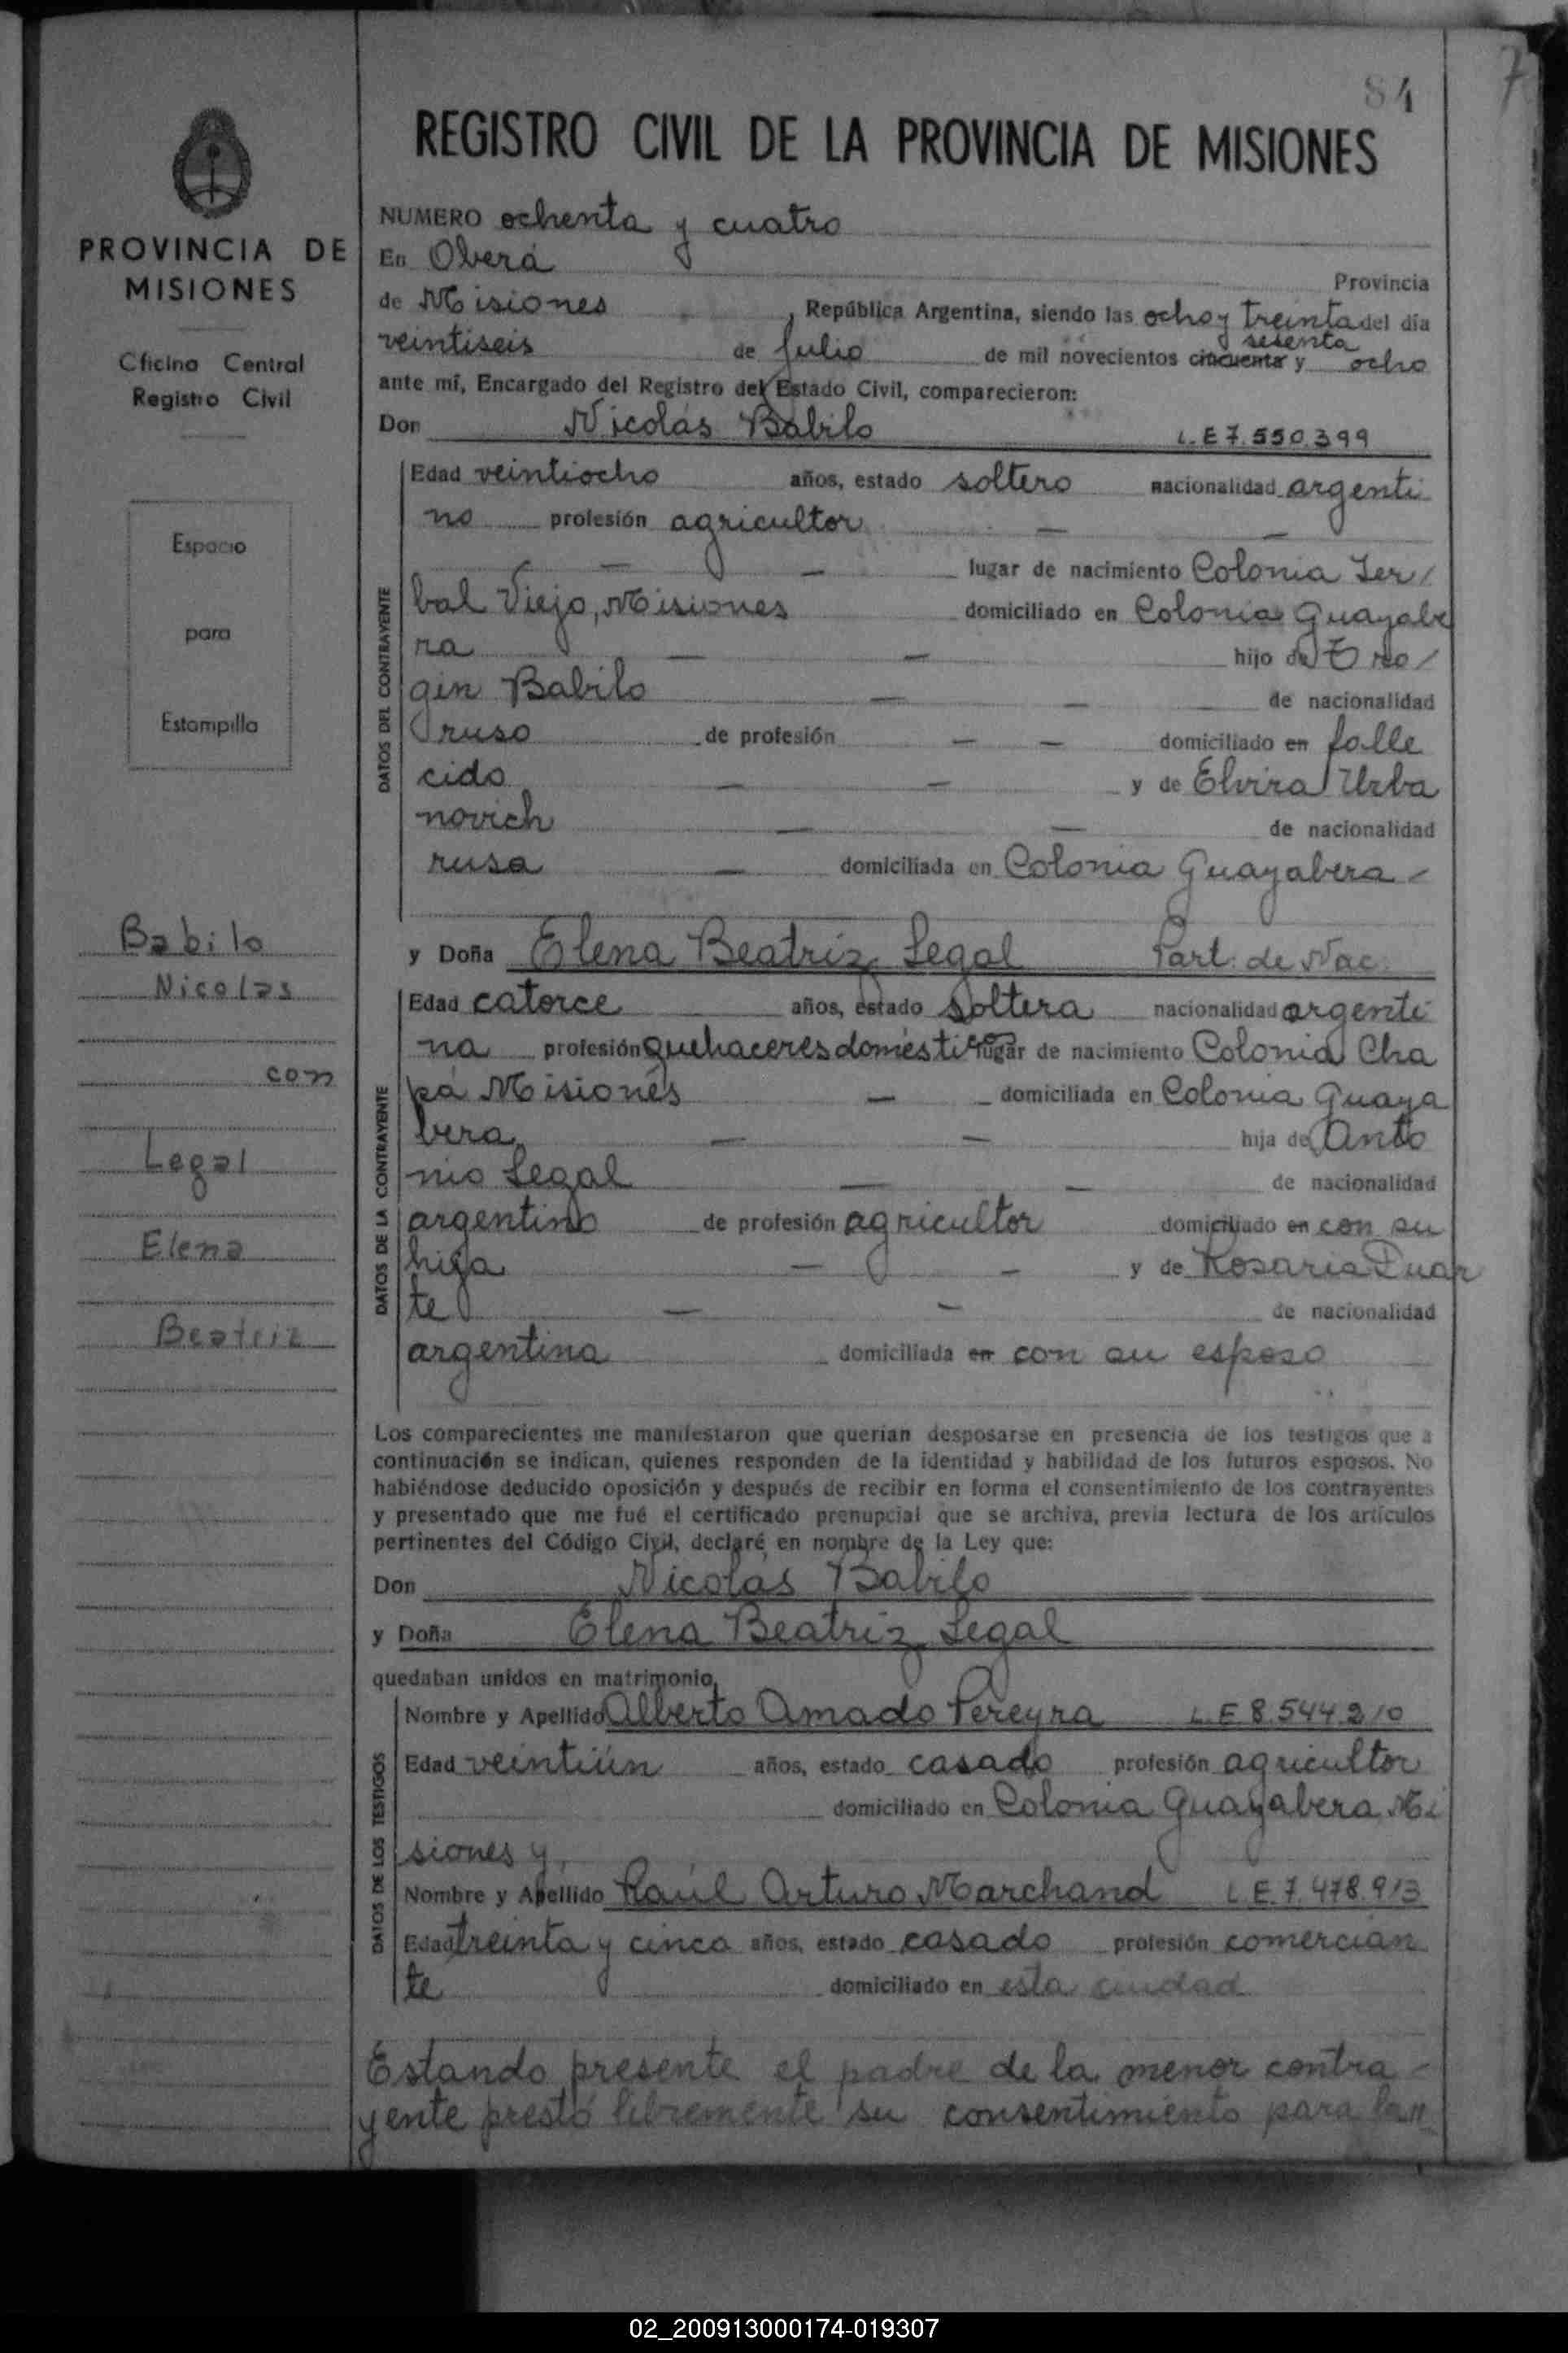 84
7
REGISTRO CIVIL DE LA PROVINCIA DE MISIONES
PROVINCIA DE
MISIONES
Oficina Central
Registro Civil
Espacio
para
Estampilla
Babilo
Nicolas
con
Legal
Elena
Beatriz
NUMERO ochenta y cuatro
En Oberá Provincia
de Misiones, República Argentina, siendo las ocho y treinta del día
sesenta
veintiseis de julio de mil novecientos cincuenta y ocho
ante mí, Encargado del Registro del Estado Civil, comparecieron:
Don Nicolás Babilo L.E 7.550.399
DATOS DEL CONTRAYENTE
Edad veintiocho años, estado soltero nacionalidad argenti
no profesión agricultor — —
— — lugar de nacimiento Colonia Yer/
bal Viejo, Misiones domiciliado en Colonia Guayabe
ra — — hijo de
gin Babilo — — de nacionalidad
ruso de profesión — — domiciliado en falle
cido — — y de Elvira Urba
novich — — de nacionalidad
rusa — domiciliada en Colonia Guayabera -
y Doña Elena Beatriz Legal Part. de Nac.
DATOS DE LA CONTRAYENTE
Edad catorce años, estado soltera nacionalidad argenti
na profesión quehaceres domésticos lugar de nacimiento Colonia Cha
pá Misiones — domiciliada en Colonia Guaya
bera — — hija de Anto
nio Legal — — de nacionalidad
argentino de profesión agricultor domiciliado en con su
hija — — y de Rosaria Duar
te — — de nacionalidad
argentina domiciliada en con su esposo
Los comparecientes me manifestaron que querían desposarse en presencia de los testigos que a
continuación se indican, quienes responden de la identidad y habilidad de los futuros esposos. No
habiéndose deducido oposición y después de recibir en forma el consentimiento de los contrayentes
y presentado que me fué el certificado prenupcial que se archiva, previa lectura de los artículos
pertinentes del Código Civil, declaré en nombre de la Ley que:
Don Nicolás Babilo
y Doña Elena Beatriz Legal
quedaban unidos en matrimonio.
DATOS DE LOS TESTIGOS
Nombre y Apellido Alberto Amado Pereyra L.E 8.544.210
Edad veintiún años, estado casado profesión agricultor
domiciliado en Colonia Guayabera, Mi
siones y,
Nombre y Apellido Raúl Arturo Marchand L.E. 7.478.913
Edad treinta y cinco años, estado casado profesión comercian
te domiciliado en esta ciudad
Estando presente el padre de la menor contra -
yente prestó libremente su consentimiento para la//
02_200913000174-019307